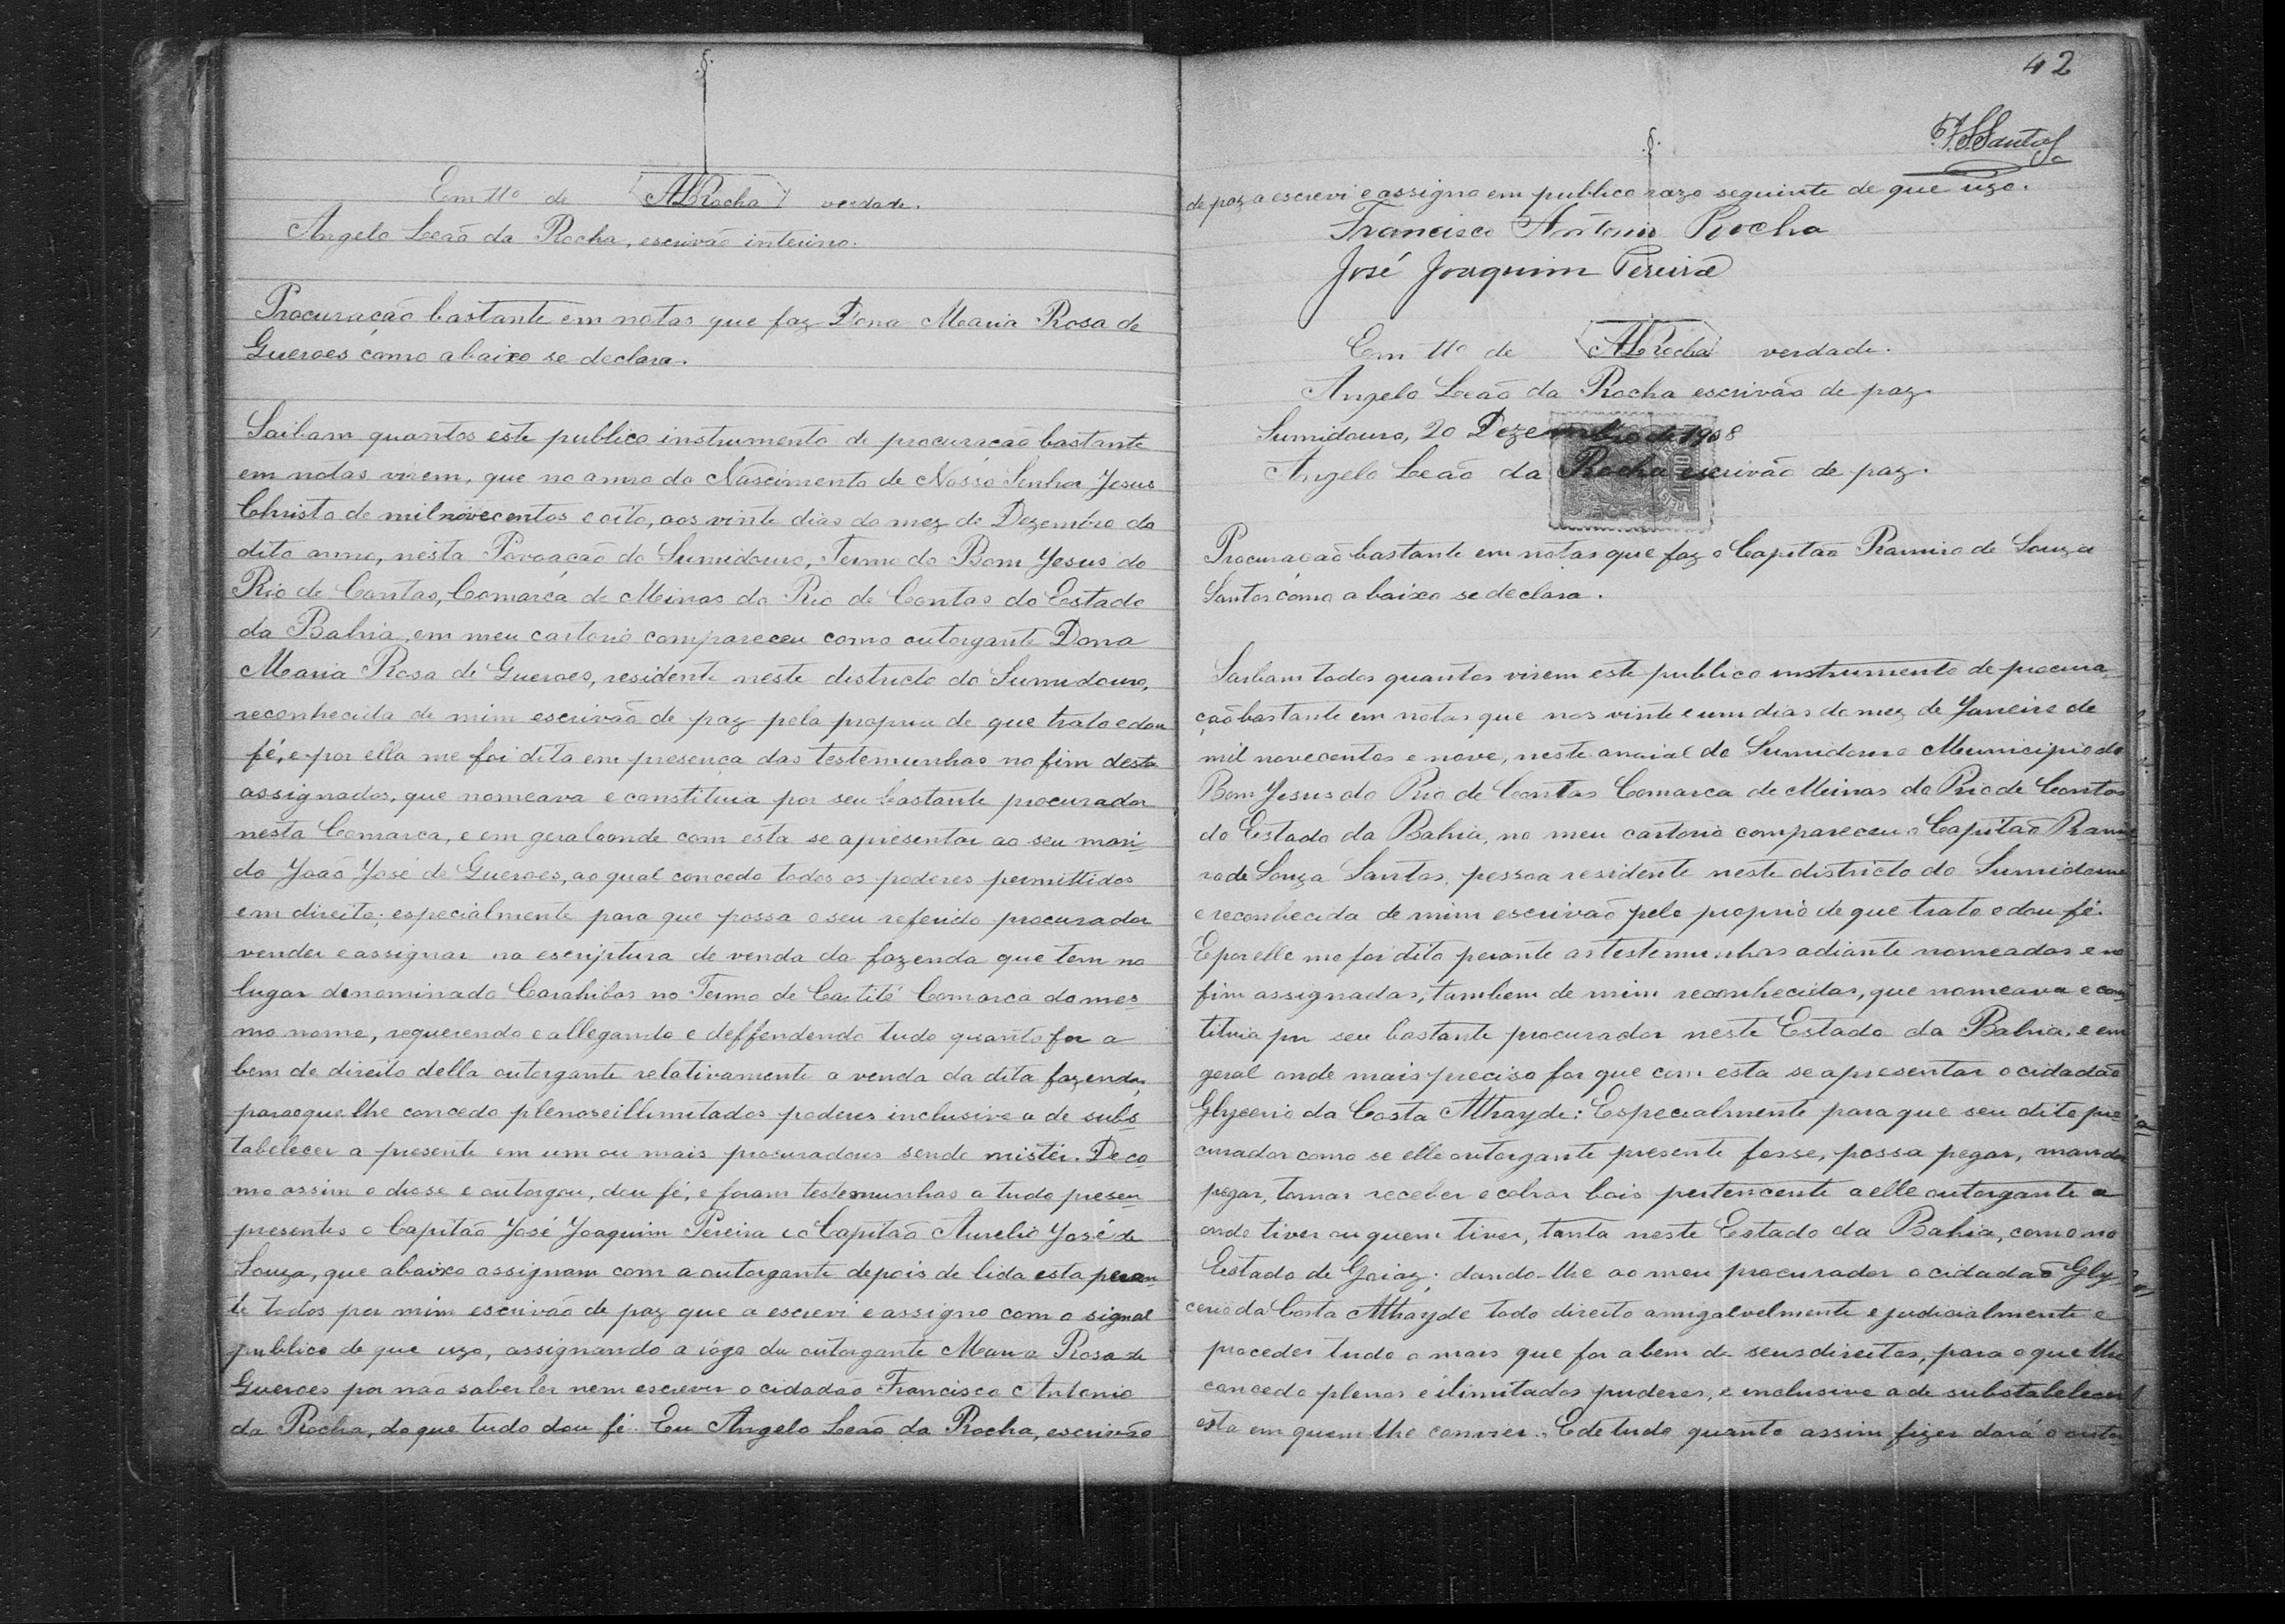 Em tto de ALRocha verdade.
Angelo Leão da Rocha, escrivão interino.
Procuração bastante em notas que faz Dona Maria Rosa de
Gueroes como abaixo se declara.
Saibam quantos este publico instrumento de procuração bastante
em notas virem, que no anno do Nascimento de Nosso Senhor Jesus
Christo de mil novecentos e oito, aos vinte dias do mez de Dezembro do
dito anno, nesta Povoação do Sumidouro, Termo do Bom Jesus do
Rio de Contas, Comarca de Minas do Rio de Contas do Estado
da Bahia, em meu cartorio compareceu como outorgante Dona
Maria Rosa de Gueroes, residente neste districto do Sumidouro,
reconhecida de mim escrivão de paz pela propria de que trato e dou
fé, e por ella me foi dito em presença das testemunhas no fim desta
assignados, que nomeava e constituia por seu bastante procurador
nesta Comarca, e em geral aonde com esta se apresentar ao seu mari-
do João José de Gueroes, ao qual concedo todos os poderes permittidos
em direito; especialmente para que possa o seu referido procurador
vender e assignar na escriptura de venda da fazenda que tem no
lugar denominado Carahibas no Termo de Caetité Comarca do mes-
mo nome, requerendo e allegando e deffendendo tudo quanto for a
bem do direito della outorgante relativamente a venda da dita fazenda,
para o que lhe concedo plenos e illimitados poderes inclusive a de subs-
tabelecer a presente em um ou mais procuradores sendo mistér. De co-
mo assim o disse e outorgou, dou fé, e foram testemunhas a tudo presen-
presentes o Capitão José Joaquim Pereira e o Capitão Aurelio José de
Souza, que abaixo assignam com a outorgante depois de lida esta peran-
te todos por mim escrivão de paz que a escrevi e assigno com o signal
publico de que uzo, assignando a rôgo da outorgante Maria Rosa de
Gueroes por não saber ler nem escrever o cidadão Francisco Antonio
da Rocha, do que tudo dou fé. Eu Angelo Leão da Rocha, escrivão
42
Santos
de paz a escrevi e assigno em publico razo seguinte de que uzo.
Francisco Antonio Rocha
José Joaquim Pereira
Em tto de ALRocha verdade.
Angelo Leão da Rocha escrivão de paz.
Sumidouro, 20 Dezembro de 1908
Angelo Leão da Rocha escrivão de paz.
Procuração bastante em notas que faz o Capitão Ramiro de Souza
Santos como abaixo se declara.
Saibam todos quantos virem este publico instrumento de procura-
ção bastante em notas que nos vinte e um dias do mez de Janeiro de
mil novecentos e nove, neste arraial do Sumidouro Municipio do
Bom Jesus do Rio de Contas Comarca de Minas do Rio de Contas
do Estado da Bahia, no meu cartorio compareceu o Capitão Rami-
ro de Souza Santos, pessoa residente neste districto do Sumidouro
e reconhecida de mim escrivão pelo proprio de que trato e dou fé.
E por elle me foi dito perante as testemunhas adiante nomeadas e no
fim assignadas, tambem de mim reconhecidas, que nomeava e cons-
tituia por seu bastante procurador neste Estado da Bahia, e em
geral onde mais preciso for que com esta se apresentar o cidadão
Glycerio da Costa Athayde: Especialmente para que seu dito pro-
curador como se elle outorgante presente fosse, possa pegar, mandar
pegar, tomar receber e cobrar bois pertencente a elle outorgante a
onde tiver ou quem tiver, tanto neste Estado da Bahia, como no
Estado de Goiaz; dando-lhe ao meu procurador o cidadão Gly-
cerio da Costa Athayde todo direito amigalvelmente e judicialmente e
proceder tudo o mais que for a bem de seus direitos, para o que lhe
concedo plenos e ilimitados puderes, e inclusive a de substabelecer
esta em quem lhe convier. E de tudo quanto assim fizer dará o outor-